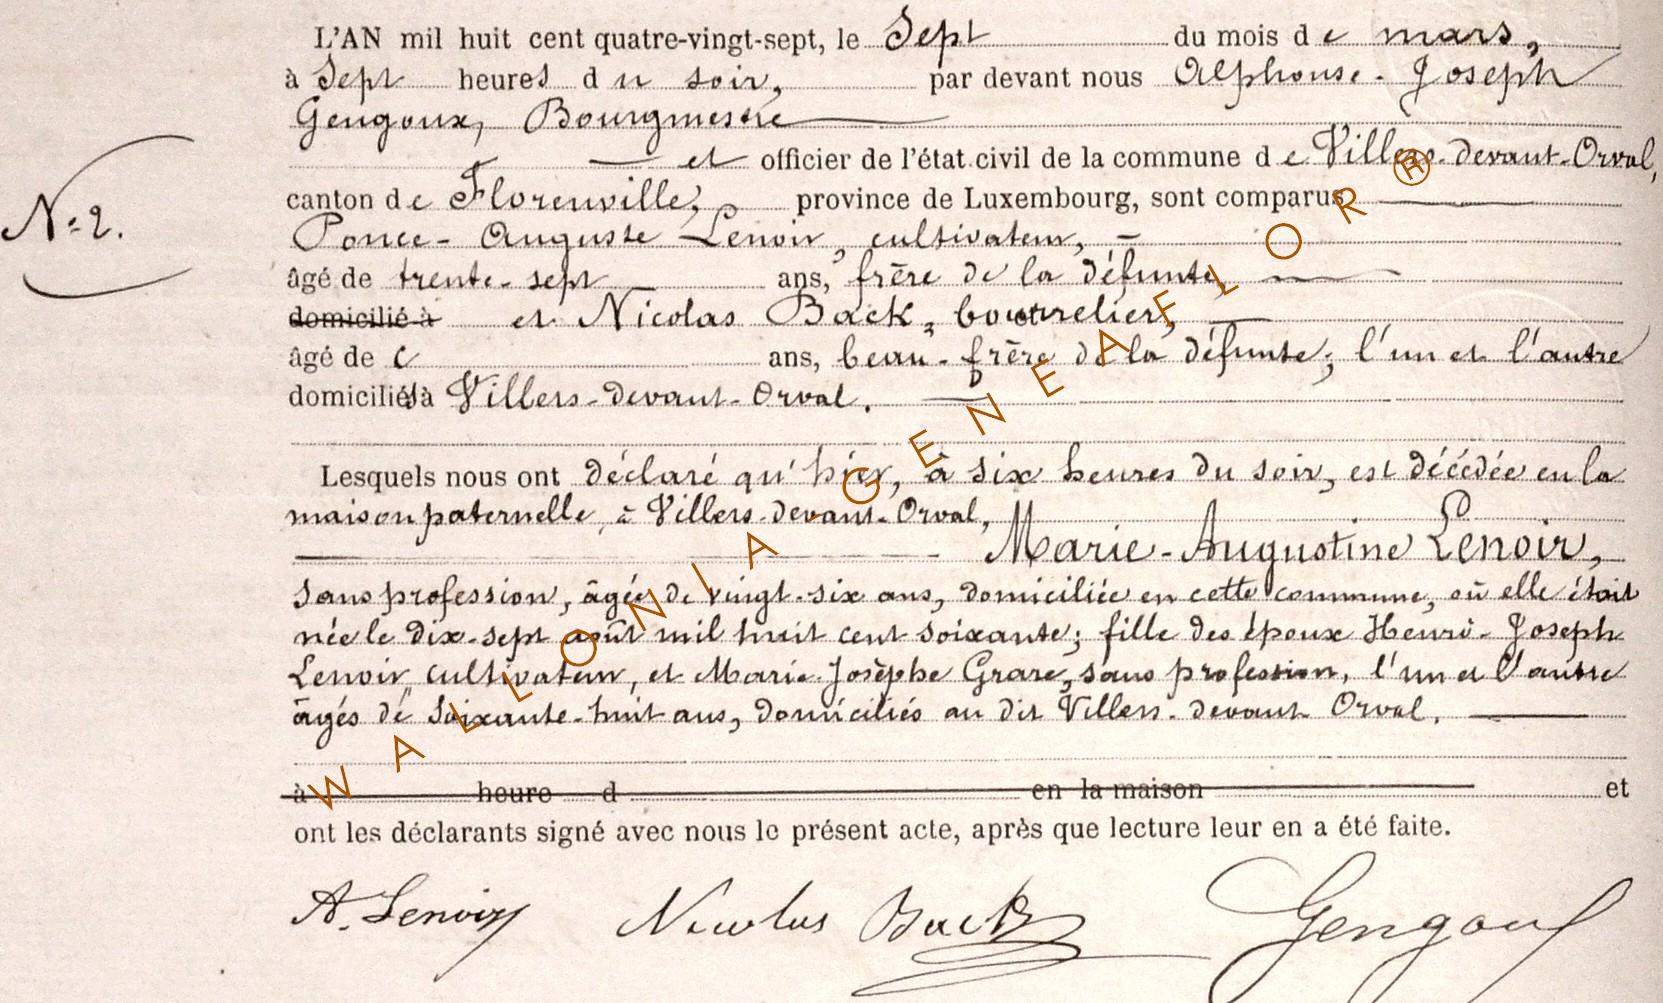 L'AN mil huit cent quatre-vingt-sept, le Sept du mois de mars,
à Sept heures du soir, par devant nous Alphonse-Joseph
Gengoux, Bourgmestre
et officier de l'état civil de la commune de Villers-devant-Orval,
N° 2.
canton de Florenville, province de Luxembourg, sont comparus
Ponce-Auguste Lenoir, cultivateur,
âgé de trente-sept ans, frère de la défunte,
domicilié à et Nicolas Back, bourrelier,
âgé de ans, beau-frère de la défunte; l'un et l'autre
domiciliés à Villers-devant-Orval.
Lesquels nous ont déclaré qu'hier, à six heures du soir, est décédée en la
maison paternelle, à Villers-devant-Orval,
Marie-Augustine Lenoir,
sans profession, âgée de vingt-six ans, domiciliée en cette commune, où elle était
née le dix-sept août mil huit cent soixante; fille des époux Henri-Joseph
Lenoir, cultivateur, et Marie-Josèphe Grare, sans profession, l'un et l'autre
âgés de soixante-huit ans, domiciliés au dit Villers-devant-Orval.
à heure d en la maison et
ont les déclarants signé avec nous le présent acte, après que lecture leur en a été faite.
A. Lenoir Nicolas Back Gengoux
WALLONIA GENEAFLOR®